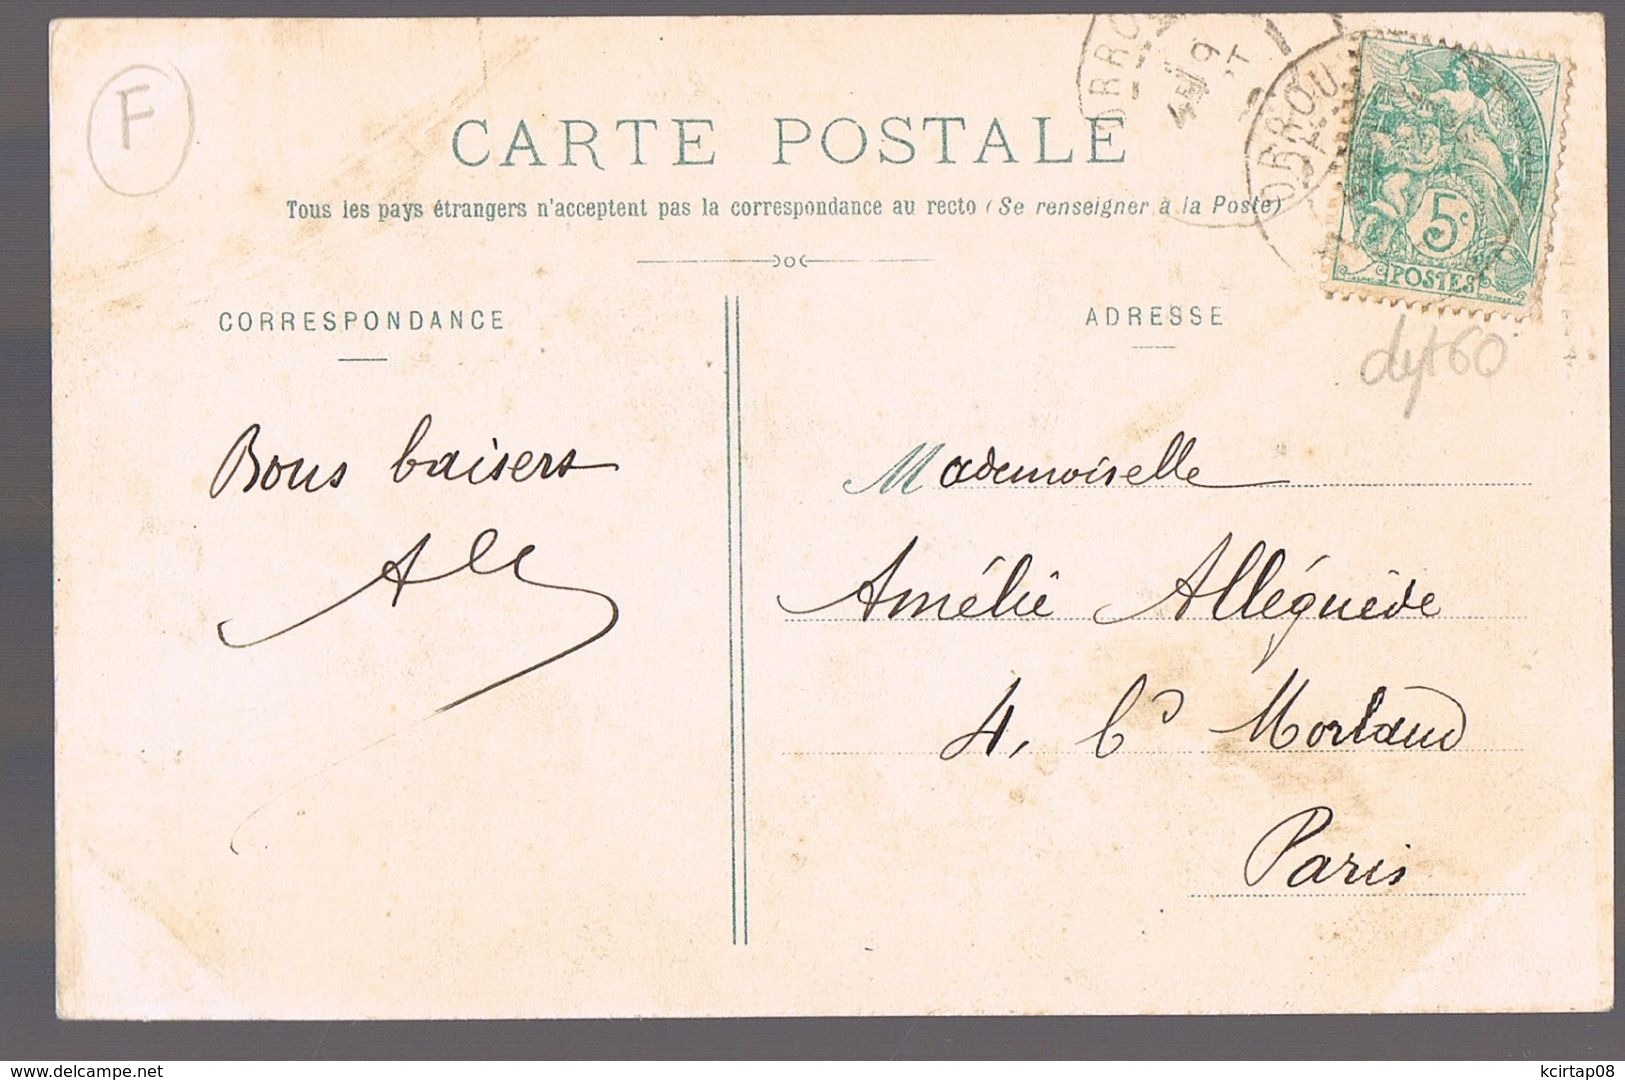 F
CARTE POSTALE
Tous les pays étrangers n'acceptent pas la correspondance au recto (Se renseigner à la Poste)
CORRESPONDANCE
ADRESSE
5c
POSTES
Bons baisers
Mademoiselle
Amélie Alléguède
4, Bd Morland
Paris
www.delcampe.net
kcirtap08